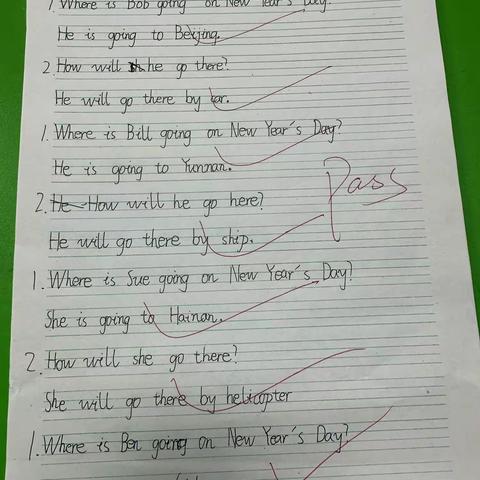 1. Where is Bob going on New Year's Day?
He is going to Beijing.
2. How will he go there?
He will go there by car.
1. Where is Bill going on New Year's Day?
He is going to Yunnan.
Pass
2. How will he go here?
He will go there by ship.
1. Where is Sue going on New Year's Day?
She is going to Hainan.
2. How will she go there?
She will go there by helicopter
1. Where is Ben going on New Year's Day?